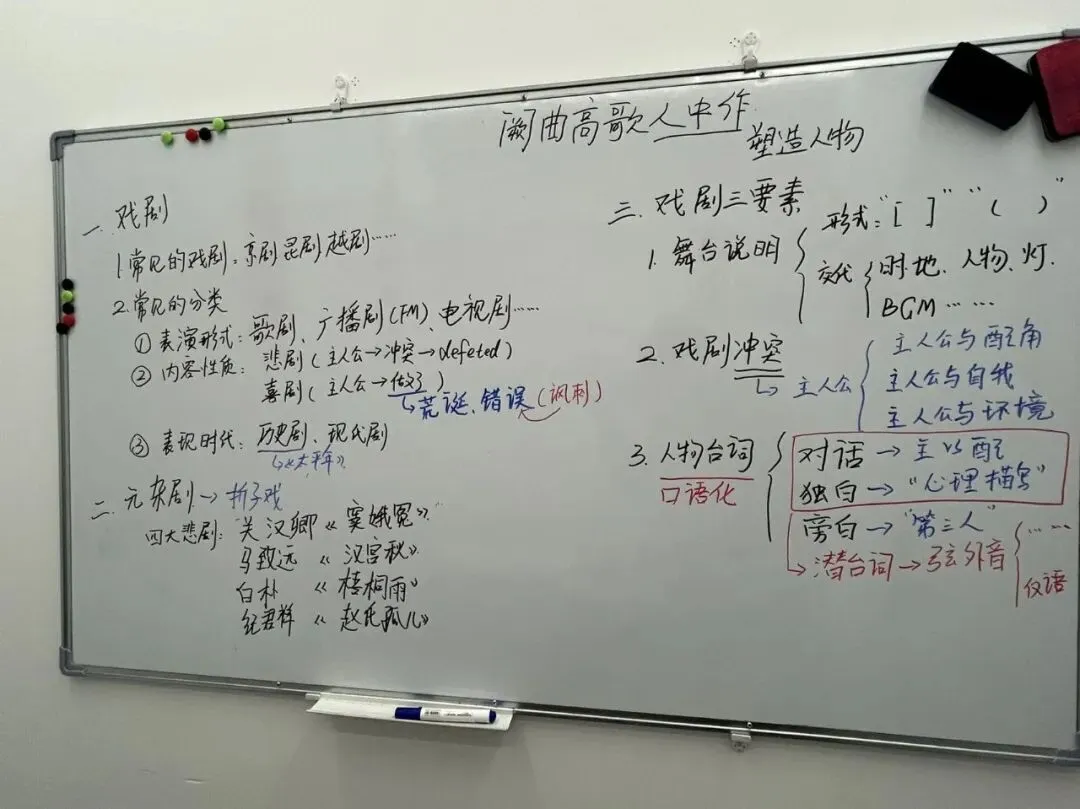 阙曲高歌人中作
塑造人物
一. 戏剧
1.常见的戏剧：京剧昆剧越剧……
2.常见的分类
① 表演形式：歌剧、广播剧(FM)、电视剧……
② 内容性质：悲剧(主人公→冲突→defeted)
喜剧(主人公→做了)
↳荒诞、错误(讽刺)
③ 表现时代：历史剧、现代剧
↳《太平年》
二. 元杂剧→折子戏
四大悲剧：关汉卿《窦娥冤》
马致远《汉宫秋》
白朴《梧桐雨》
纪君祥《赵氏孤儿》
三. 戏剧三要素
1. 舞台说明
形式:"[ ]" "( )"
交代
时.地、人物、灯.
BGM……
2. 戏剧冲突
↳主人公
主人公与配角
主人公与自我
主人公与环境
3. 人物台词
口语化
对话→主vs配
独白→"心理描写"
旁白→"第三人"
↳潜台词→弦外音
……
仅语